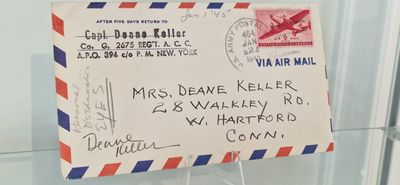 AFTER FIVE DAYS RETURN TO
Jan 1 '45
Capt. Deane Keller
Co. G, 2675 REG'T. A. C. C.
A.P.O. 394 c/o P. M. NEW YORK
U.S. ARMY POSTAL
464
JAN
6¢
UNITED STATES OF AMERICA
VIA AIR MAIL
MRS. DEANE KELLER
28 WALKLEY RD.
W. HARTFORD
CONN.
Deane
Keller